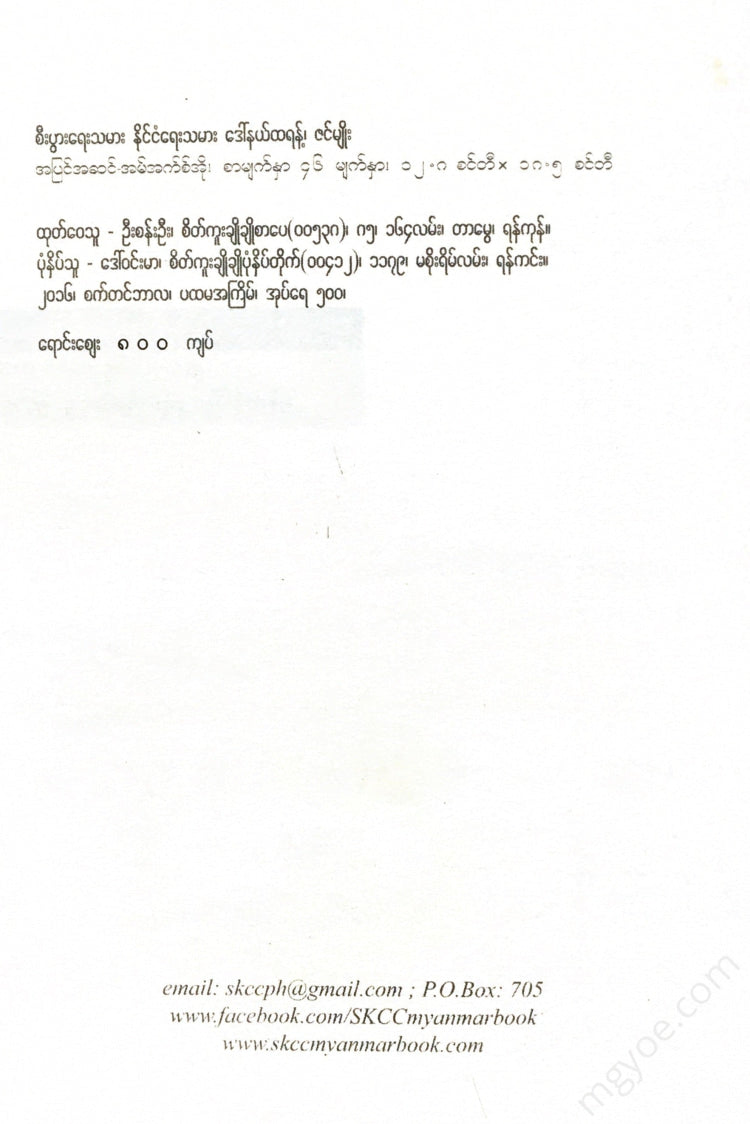 စီးပွားရေးသမား နိုင်ငံရေးသမား ဒေါ်နယ်ထရန့်၊ ဇင်မျိုး
အပြင်အဆင်-အမ်အက်စ်အို၊ စာမျက်နှာ ၄၆ မျက်နှာ၊ ၁၂.ဂ စင်တီ× ၁ဂ.၅ စင်တီ
ထုတ်ဝေသူ - ဦးစန်းဦး၊ စိတ်ကူးချိုချိုစာပေ(၀၀၅၃ဂ)၊ ဂ၅၊ ၁၆၄လမ်း၊ တာမွေ၊ ရန်ကုန်။
ပုံနှိပ်သူ - ဒေါ်ဝင်းမာ၊ စိတ်ကူးချိုချိုပုံနှိပ်တိုက်(၀၀၄၁၂)၊ ၁၁၇၉၊ မစိုးရိမ်လမ်း၊ ရန်ကင်း။
၂၀၁၆၊ စက်တင်ဘာလ၊ ပထမအကြိမ်၊ အုပ်ရေ ၅၀၀၊
ရောင်းဈေး ၈၀၀ ကျပ်
email: skccph@gmail.com ; P.O.Box: 705
www.facebook.com/SKCCmyanmarbook
www.skccmyanmarbook.com
mgyoe.com